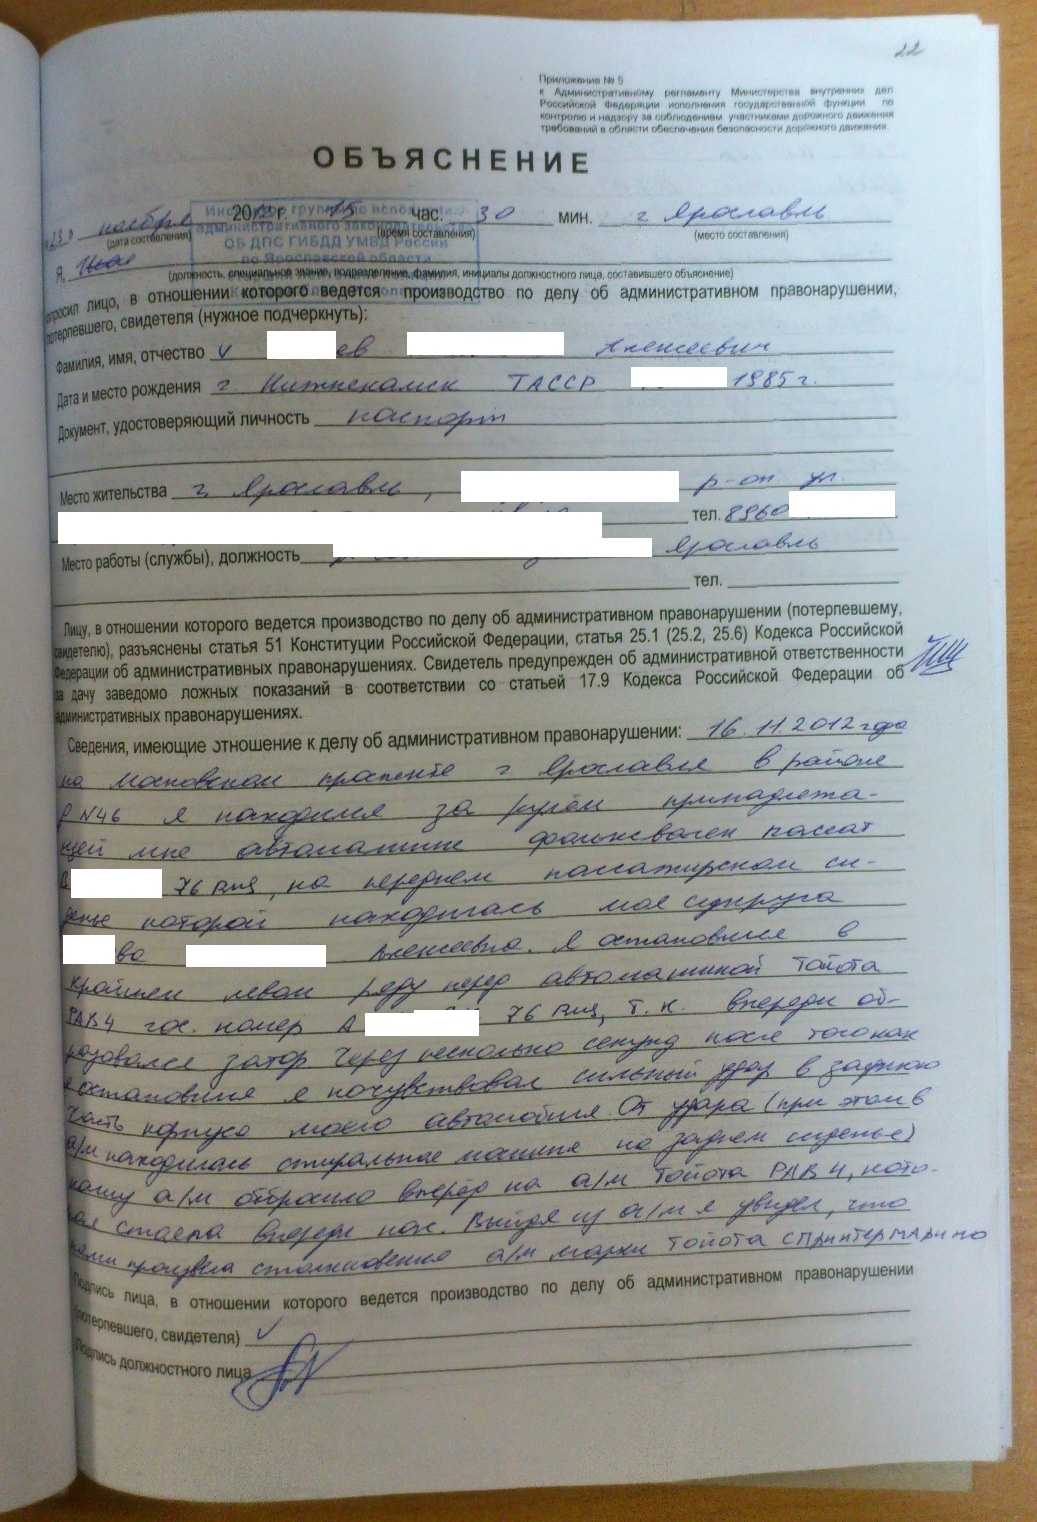 22
Приложение № 5
к Административному регламенту Министерства внутренних дел
Российской Федерации исполнения государственной функции по
контролю и надзору за соблюдением участниками дорожного движения
требований в области обеспечения безопасности дорожного движения.
ОБЪЯСНЕНИЕ
«23» ноября 2012 г. 15 час. 30 мин. г. Ярославль
(дата составления) (время составления) (место составления)
административного законодательства
ОБ ДПС ГИБДД УМВД России
по Ярославской области
Я,
(должность, специальное звание, подразделение, фамилия, инициалы должностного лица, составившего объяснение)
опросил лицо, в отношении которого ведется производство по делу об административном правонарушении,
потерпевшего, свидетеля (нужное подчеркнуть):
Фамилия, имя, отчество ев Алексеевич
Дата и место рождения г. Нижнекамск ТАССР 1985 г.
Документ, удостоверяющий личность паспорт
Место жительства г. Ярославль, р-он. ул.
тел. 8960
Место работы (службы), должность Ярославль
тел.
Лицу, в отношении которого ведется производство по делу об административном правонарушении (потерпевшему,
свидетелю), разъяснены статья 51 Конституции Российской Федерации, статья 25.1 (25.2, 25.6) Кодекса Российской
Федерации об административных правонарушениях. Свидетель предупрежден об административной ответственности
за дачу заведомо ложных показаний в соответствии со статьей 17.9 Кодекса Российской Федерации об
административных правонарушениях.
Сведения, имеющие отношение к делу об административном правонарушении: 16.11.2012 года
на Московском проспекте г Ярославля в районе
д N46 я находился за рулём принадлежа-
щей мне автомашины фольксваген пассат
В 76 RUS, на переднем пассажирском си-
денье которой находилась моя супруга
ва Алексеевна. Я остановился в
крайнем левом ряду перед автомашиной Тойота
РАВ4 гос. номер А 76 RUS, т.к. впереди об-
разовался затор Через несколько секунд после того как
я остановился я почувствовал сильный удар в заднюю
часть корпуса моего автомобиля. От удара (при этом в
а/м находилась стиральная машина на заднем сиденье)
нашу а/м отбросило вперёд на а/м Тойота РАВ 4, кото-
рая стояла впереди нас. Выйдя из а/м я увидел, что
нами произвела столкновение а/м марки Тойота Спринтер Марино
Подпись лица, в отношении которого ведется производство по делу об административном правонарушении
(потерпевшего, свидетеля)
Подпись должностного лица